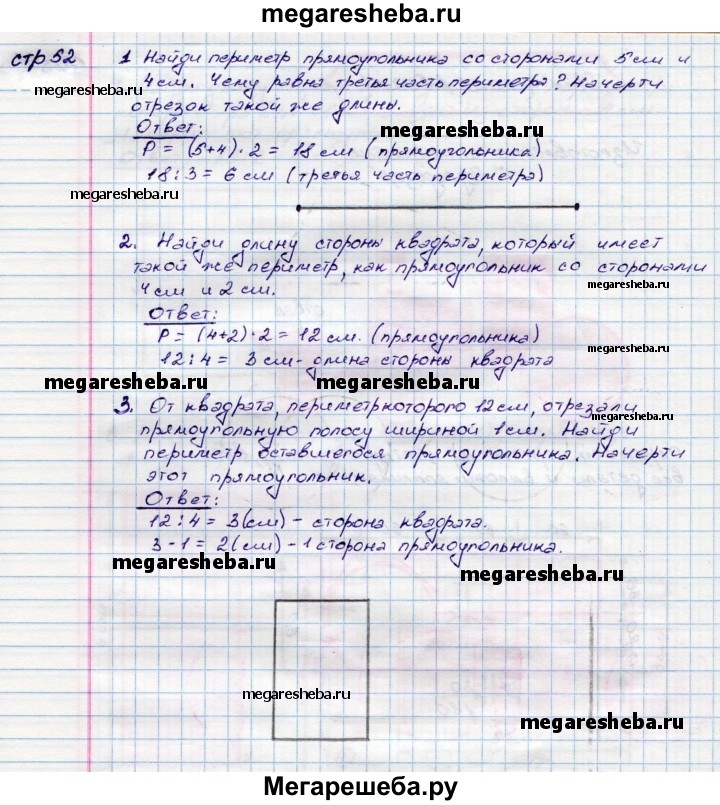 megaresheba.ru
стр 52
1 Найди периметр прямоугольника со сторонами 5 см и
4 см. Чему равна третья часть периметра? Начерти
megaresheba.ru
отрезок такой же длины.
Ответ:
megaresheba.ru
P = (5+4)·2 = 18 см (прямоугольника)
18:3 = 6 см (третья часть периметра)
megaresheba.ru
2. Найди длину стороны квадрата, который имеет
такой же периметр, как прямоугольник со сторонами
4 см и 2 см.
megaresheba.ru
Ответ:
P = (4+2)·2 = 12 см. (прямоугольника)
megaresheba.ru
12:4 = 3 см - длина стороны квадрата
megaresheba.ru
megaresheba.ru
3. От квадрата, периметр которого 12 см, отрезали
megaresheba.ru
прямоугольную полосу шириной 1 см. Найди
периметр оставшегося прямоугольника. Начерти
этот прямоугольник.
Ответ:
12:4 = 3(см) - сторона квадрата.
3-1 = 2(см) - 1 сторона прямоугольника.
megaresheba.ru
megaresheba.ru
megaresheba.ru
megaresheba.ru
Мегарешеба.ру